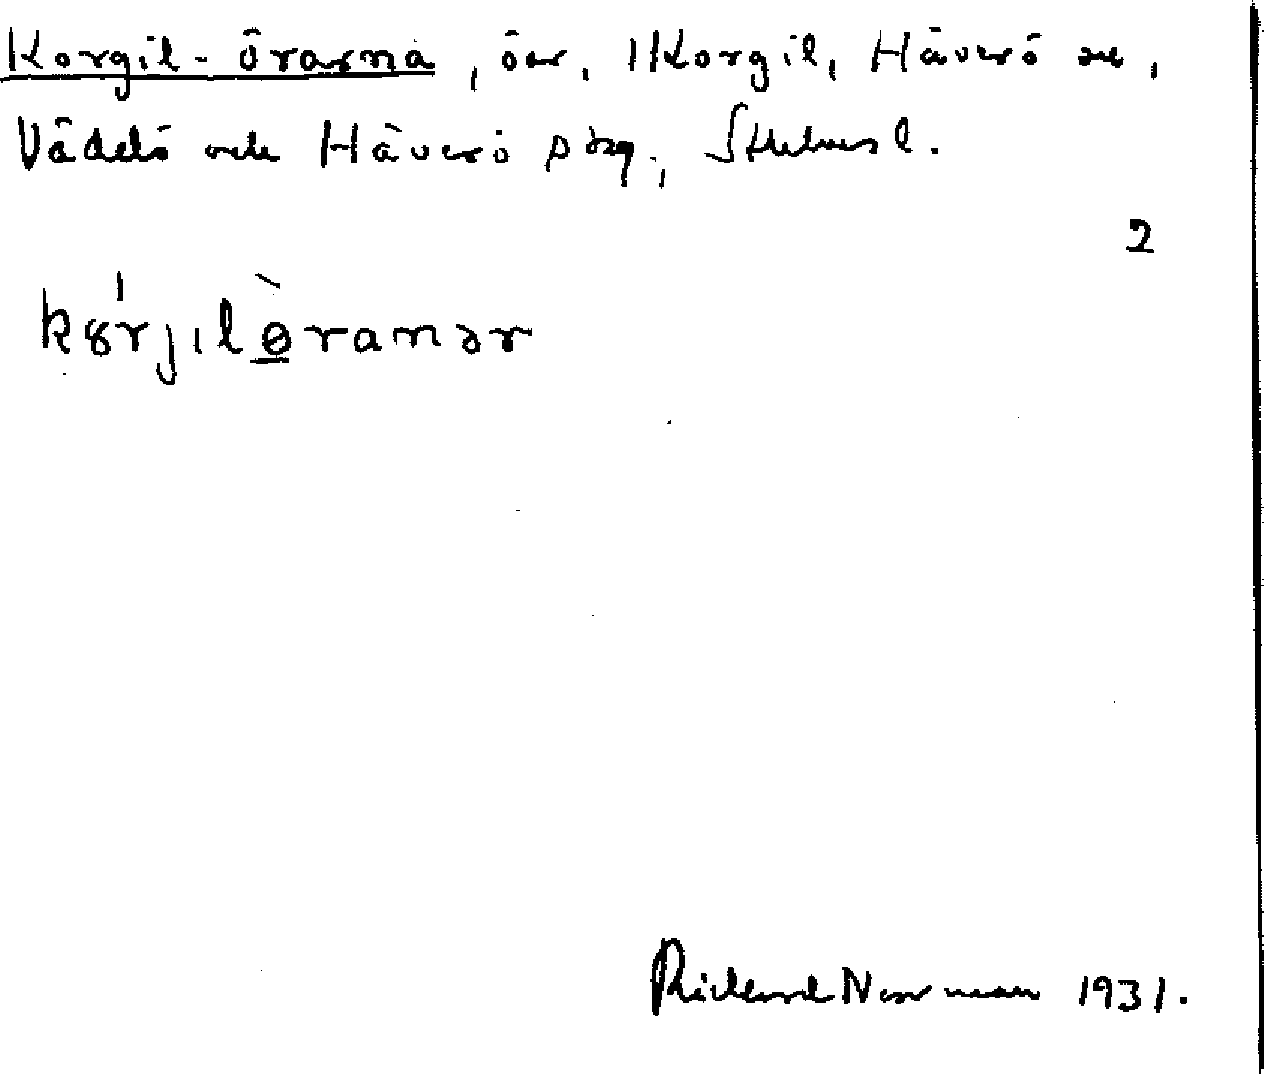 Korgil-örarna, öar, Korgil, Häverö sn,
Väddö och Häverö skg., Sthlms l.
2
kørjilöranər
Richard Norrman 1931.